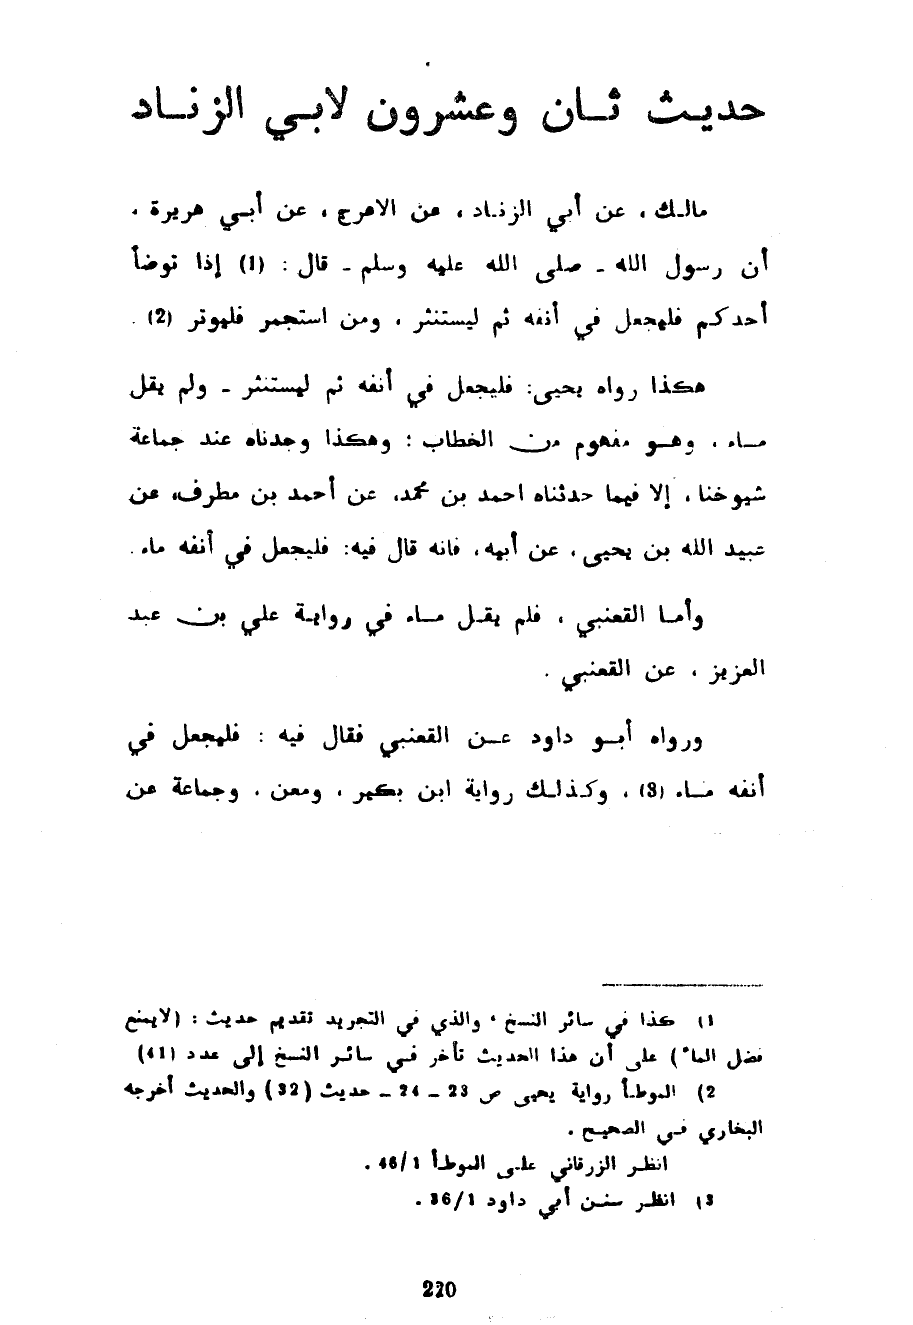 حديث ثـان وعشرون لابي الزنـاد
مالـك ، عن أبي الزنـاد ، عن الاعرج ، عن أبـي هريرة ،
أن رسول الله ـ صلى الله عليه وسلم ـ قال : (1) إذا توضأ
أحدكم فليجعل في أنفه ثم ليستنثر ، ومن استجمر فليوتر (2) .
هكذا رواه يحيى: فليجعل في أنفه ثم ليستنثر ـ ولم يقل
مـاء ، وهـو مفهوم من الخطاب : وهكذا وجدناه عند جماعة
شيوخنا ، إلا فيما حدثناه احمد بن محمد، عن أحمد بن مطرف، عن
عبيد الله بن يحيى ، عن أبيه، فانه قال فيه: فليجعل في أنفه ماء .
وأمـا القعنبي ، فلم يقـل مـاء في رواية علي بن عبد
العزيز ، عن القعنبي .
ورواه أبـو داود عـن القعنبي فقال فيه : فليجعل في
أنفه مـاء (3) ، وكـذلـك رواية ابن بكير ، ومعن ، وجماعة عن
1) كذا في سائر النسخ ، والذي في التجريد تقديم حديث : (لايمنع
فضل الماء) على أن هذا الحديث تأخر فـي سائـر النـسخ إلى عدد (41)
2) الموطـأ رواية يحيى ص 23 ـ 24 ـ حديث (32) والحديث أخرجه
البخاري فـي الصحيـح .
انظـر الزرقاني علـى الموطـأ 46/1 .
3) انظـر سنـن أبي داود 36/1 .
220